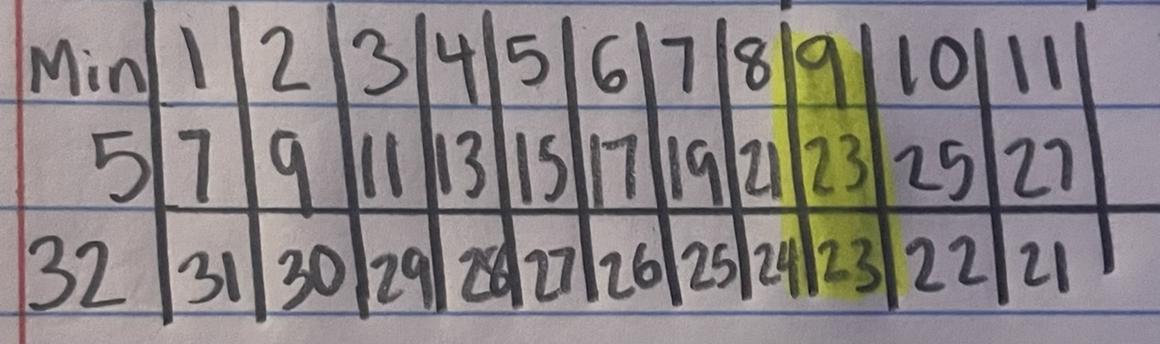 Min 1 2 3 4 5 6 7 8 9 10 11
5 7 9 11 13 15 17 19 21 23 25 27
32 31 30 29 28 27 26 25 24 23 22 21